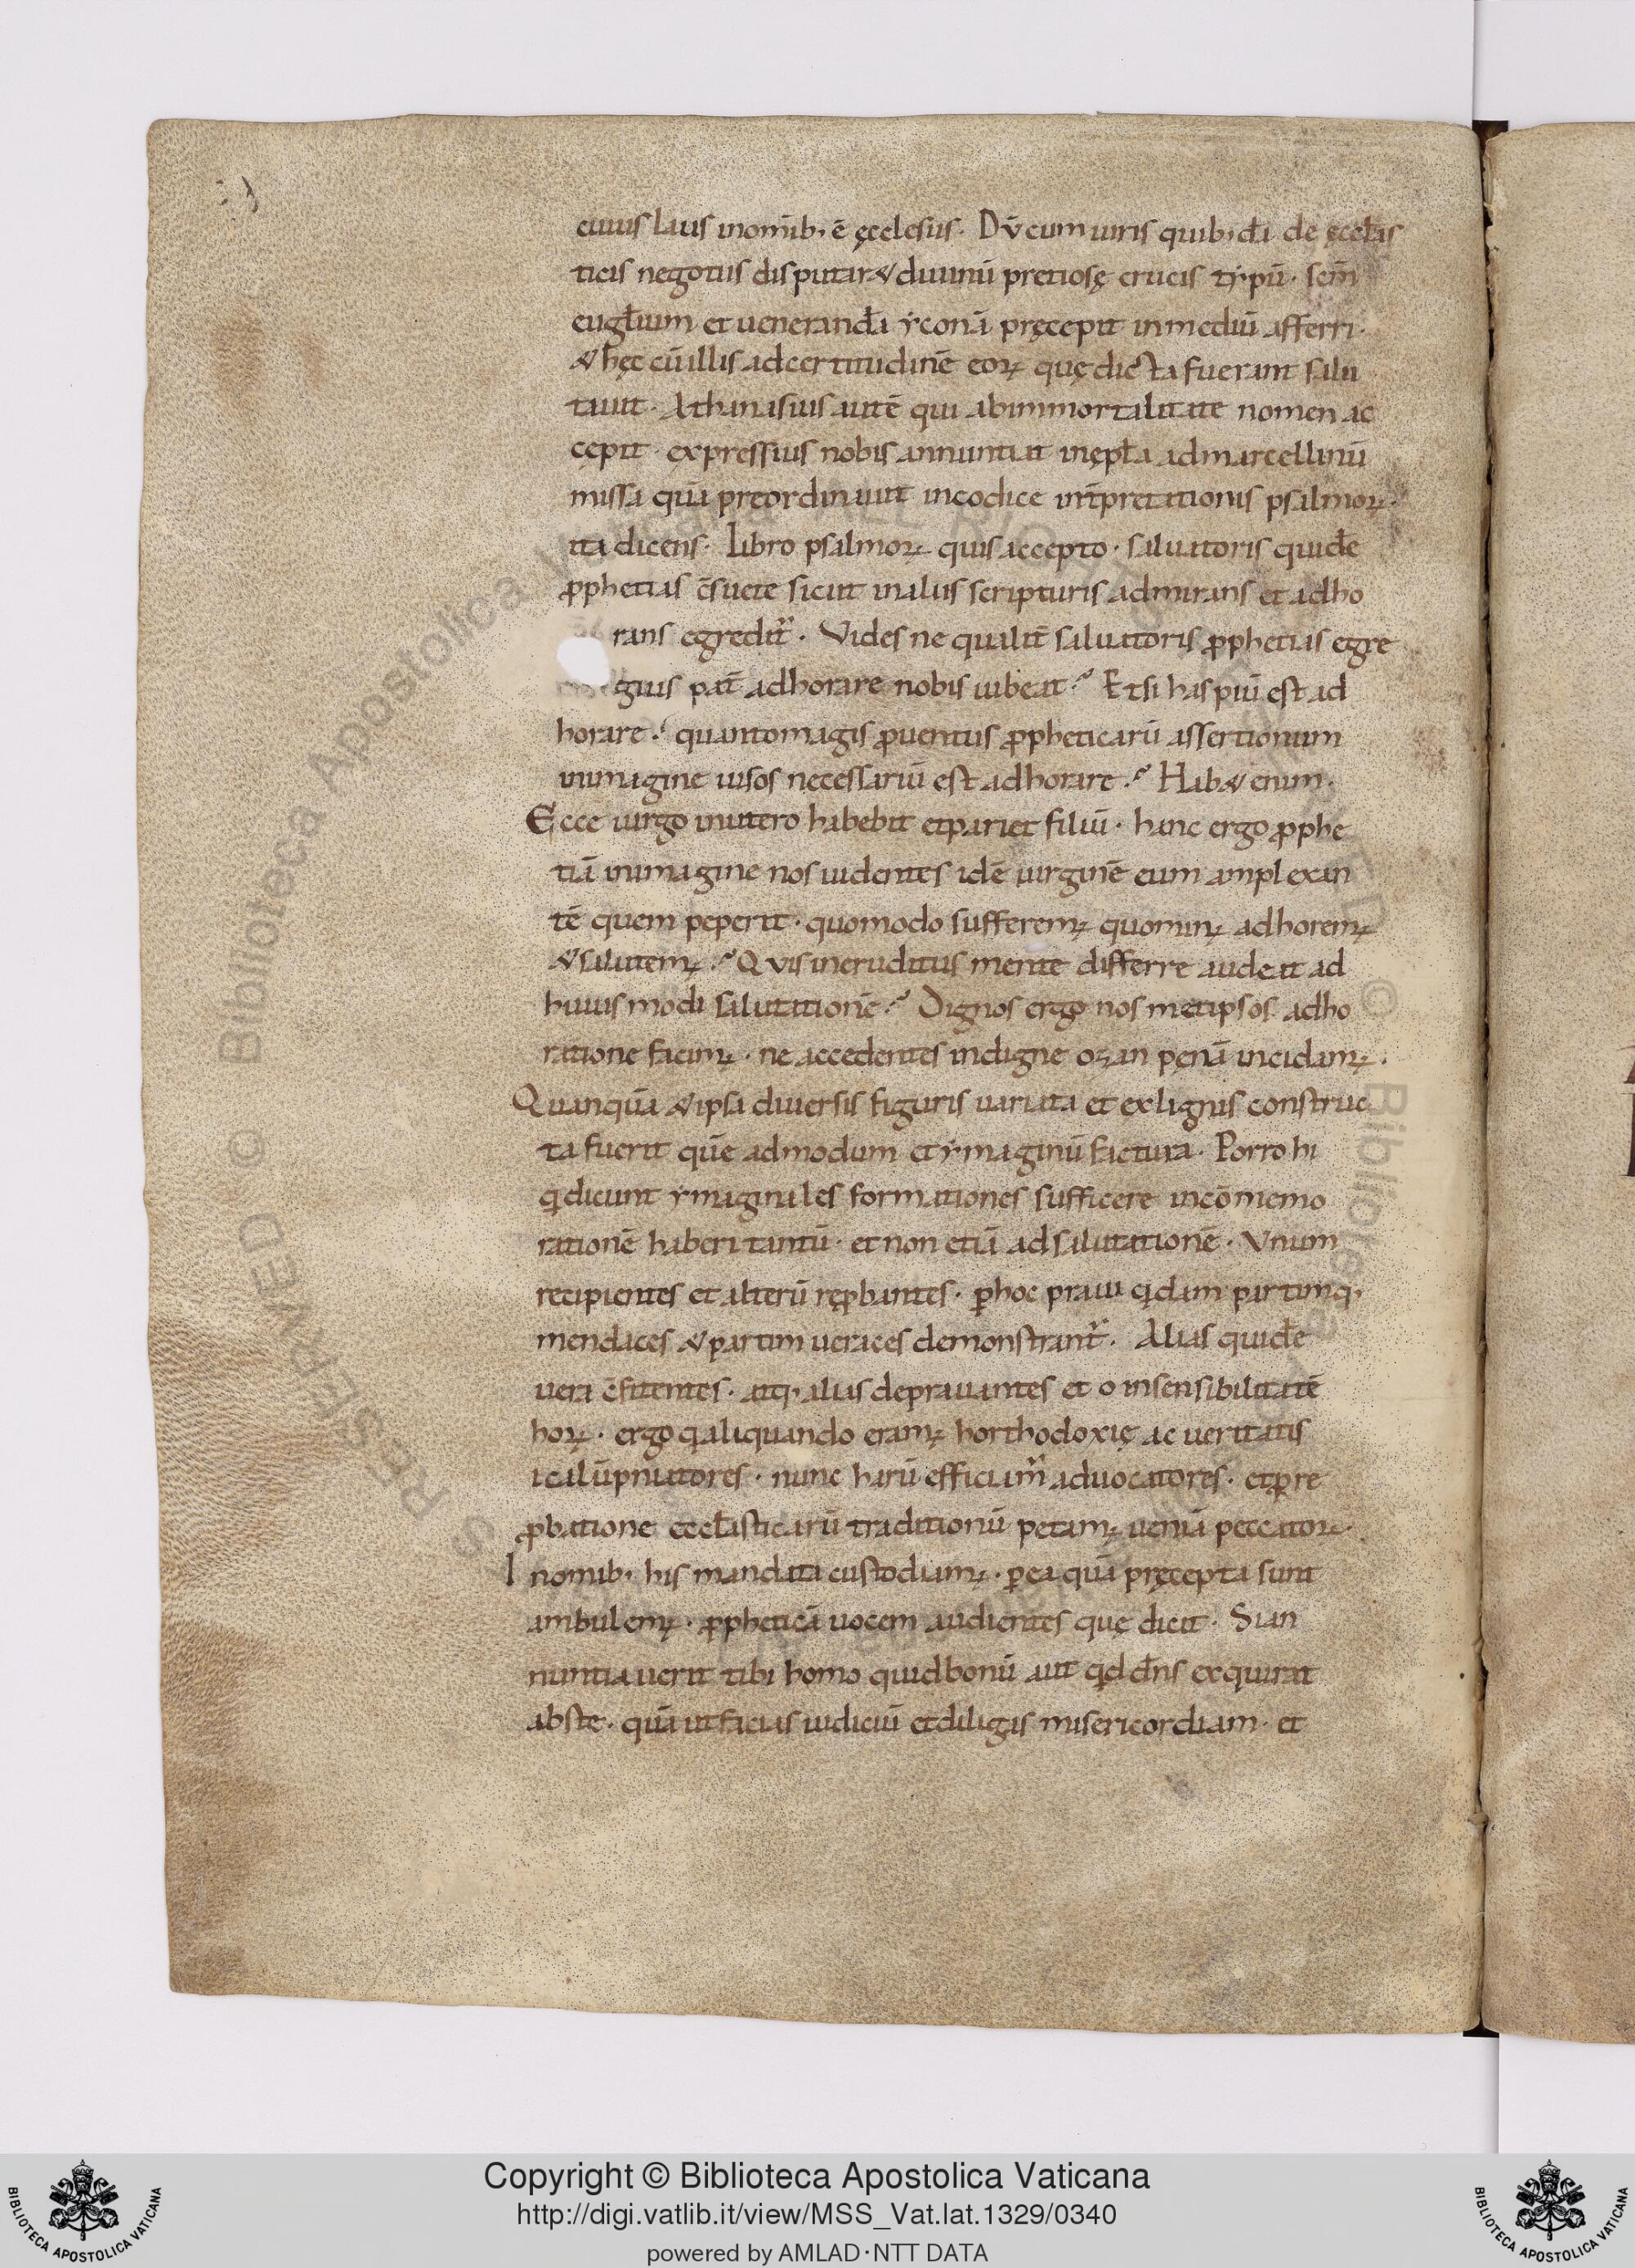 cuius laus in om̄ib; ē ęcclesiis. Dū cum uiris quibusdā de ęcclās
ticis negotiis disputar& diuinū pretiosę crucis typū. sc̄m
euglium et uenerandā yconā pręcepit inmediū afferri.
& hęc cū illis adcertitudinē eoꝝ quę dicta fuerant salu
tauit. Athanasius autē qui abinmortalitate nomen ac
cepit. expressius nobis annuntiat inępła admarcellinū
missa quā preordinauit incodice int̄pretationis psalmoꝝ.
ita dicens. Libro psalmoꝝ quis accepto. saluatoris quidē
ꝓphetias c̄suete sicut inaliis scripturis admirans et adho
rans egredit̄. Vides ne qualit̄ saluatoris ꝓphetias egre
gius pat̄ adhorare nobis iubeat? Et si has piū est ad
horare? quantomagis ꝓuentus ꝓpheticarū assertionum
inimagine uisos necessariū est adhorare? Hab& enim.
Ecce uirgo inutero habebit etpariet filiū. hanc ergo ꝓphe
tiā inimagine nos uidentes idē uirginē eum amplexan
tē quem peperit. quomodo sufferemꝰ quominꝰ adhoremꝰ
& salutemꝰ? Qvis ineruditus mente differre audeat ad
huiusmodi salutationē? Dignos ergo nos metipsos adho
ratione facimꝰ. ne accedentes indigne ozan pęnā incidamꝰ.
Quanquā & ipsa diuersis figuris uariata et exlignis construc
ta fuerit quē admodum et ymaginū factura. Porro hi
qi dicunt ymaginales formationes sufficere incōmemo
rationē haberi tantū. et non etiā adsalutationē. Vnum
recipientes et alterū reꝓbantes. ꝑhoc praui qidam partimq;
mendaces & partim ueraces demonstrant̄. Alias quidē
uera c̄fitentes. atq; alias deprauantes et o insensibilitatē
hoꝝ. ergo qi aliquando eramꝰ horthodoxię ac ueritatis
icalūpniatores. nunc harū efficiam̄ aduocatores. etꝑre
ꝓbatione ecclāsticarū traditionū petamꝰ ueniā peccatoꝝ.
I nomib; his mandata custodiamꝰ. ꝑea quā pręcepta sunt
ambulemꝰ. ꝓpheticā uocem audientes quę dicit. Si an
nuntiauerit tibi homo quid bonū aut qid dn̄s exquirat
abste. quā ut facias iudiciū etdiligis misericordiam. et
Copyright © Biblioteca Apostolica Vaticana
http://digi.vatlib.it/view/MSS_Vat.lat.1329/0340
powered by AMLAD·NTT DATA
BIBLIOTECA APOSTOLICA VATICANA
BIBLIOTECA APOSTOLICA VATICANA